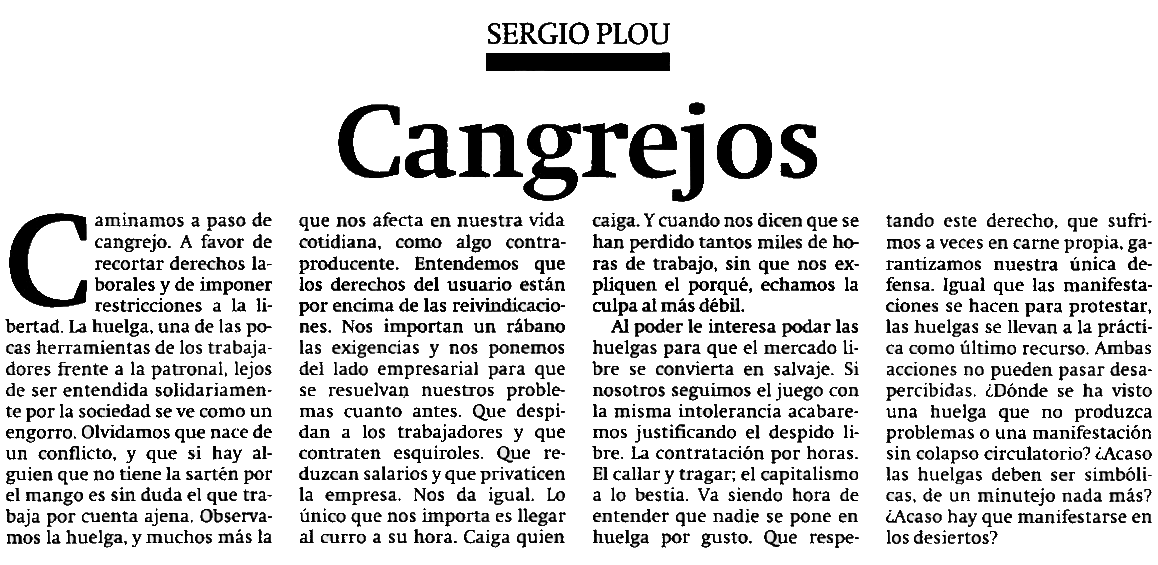 SERGIO PLOU
Cangrejos
Caminamos a paso de
cangrejo. A favor de
recortar derechos la-
borales y de imponer
restricciones a la li-
bertad. La huelga, una de las po-
cas herramientas de los trabaja-
dores frente a la patronal, lejos
de ser entendida solidariamen-
te por la sociedad se ve como un
engorro. Olvidamos que nace de
un conflicto, y que si hay al-
guien que no tiene la sartén por
el mango es sin duda el que tra-
baja por cuenta ajena. Observa-
mos la huelga, y muchos más la
que nos afecta en nuestra vida
cotidiana, como algo contra-
producente. Entendemos que
los derechos del usuario están
por encima de las reivindicacio-
nes. Nos importan un rábano
las exigencias y nos ponemos
del lado empresarial para que
se resuelvan nuestros proble-
mas cuanto antes. Que despi-
dan a los trabajadores y que
contraten esquiroles. Que re-
duzcan salarios y que privaticen
la empresa. Nos da igual. Lo
único que nos importa es llegar
al curro a su hora. Caiga quien
caiga. Y cuando nos dicen que se
han perdido tantos miles de ho-
ras de trabajo, sin que nos ex-
pliquen el porqué, echamos la
culpa al más débil.
Al poder le interesa podar las
huelgas para que el mercado li-
bre se convierta en salvaje. Si
nosotros seguimos el juego con
la misma intolerancia acabare-
mos justificando el despido li-
bre. La contratación por horas.
El callar y tragar; el capitalismo
a lo bestia. Va siendo hora de
entender que nadie se pone en
huelga por gusto. Que respe-
tando este derecho, que sufri-
mos a veces en carne propia, ga-
rantizamos nuestra única de-
fensa. Igual que las manifesta-
ciones se hacen para protestar,
las huelgas se llevan a la prácti-
ca como último recurso. Ambas
acciones no pueden pasar desa-
percibidas. ¿Dónde se ha visto
una huelga que no produzca
problemas o una manifestación
sin colapso circulatorio? ¿Acaso
las huelgas deben ser simbóli-
cas, de un minutejo nada más?
¿Acaso hay que manifestarse en
los desiertos?